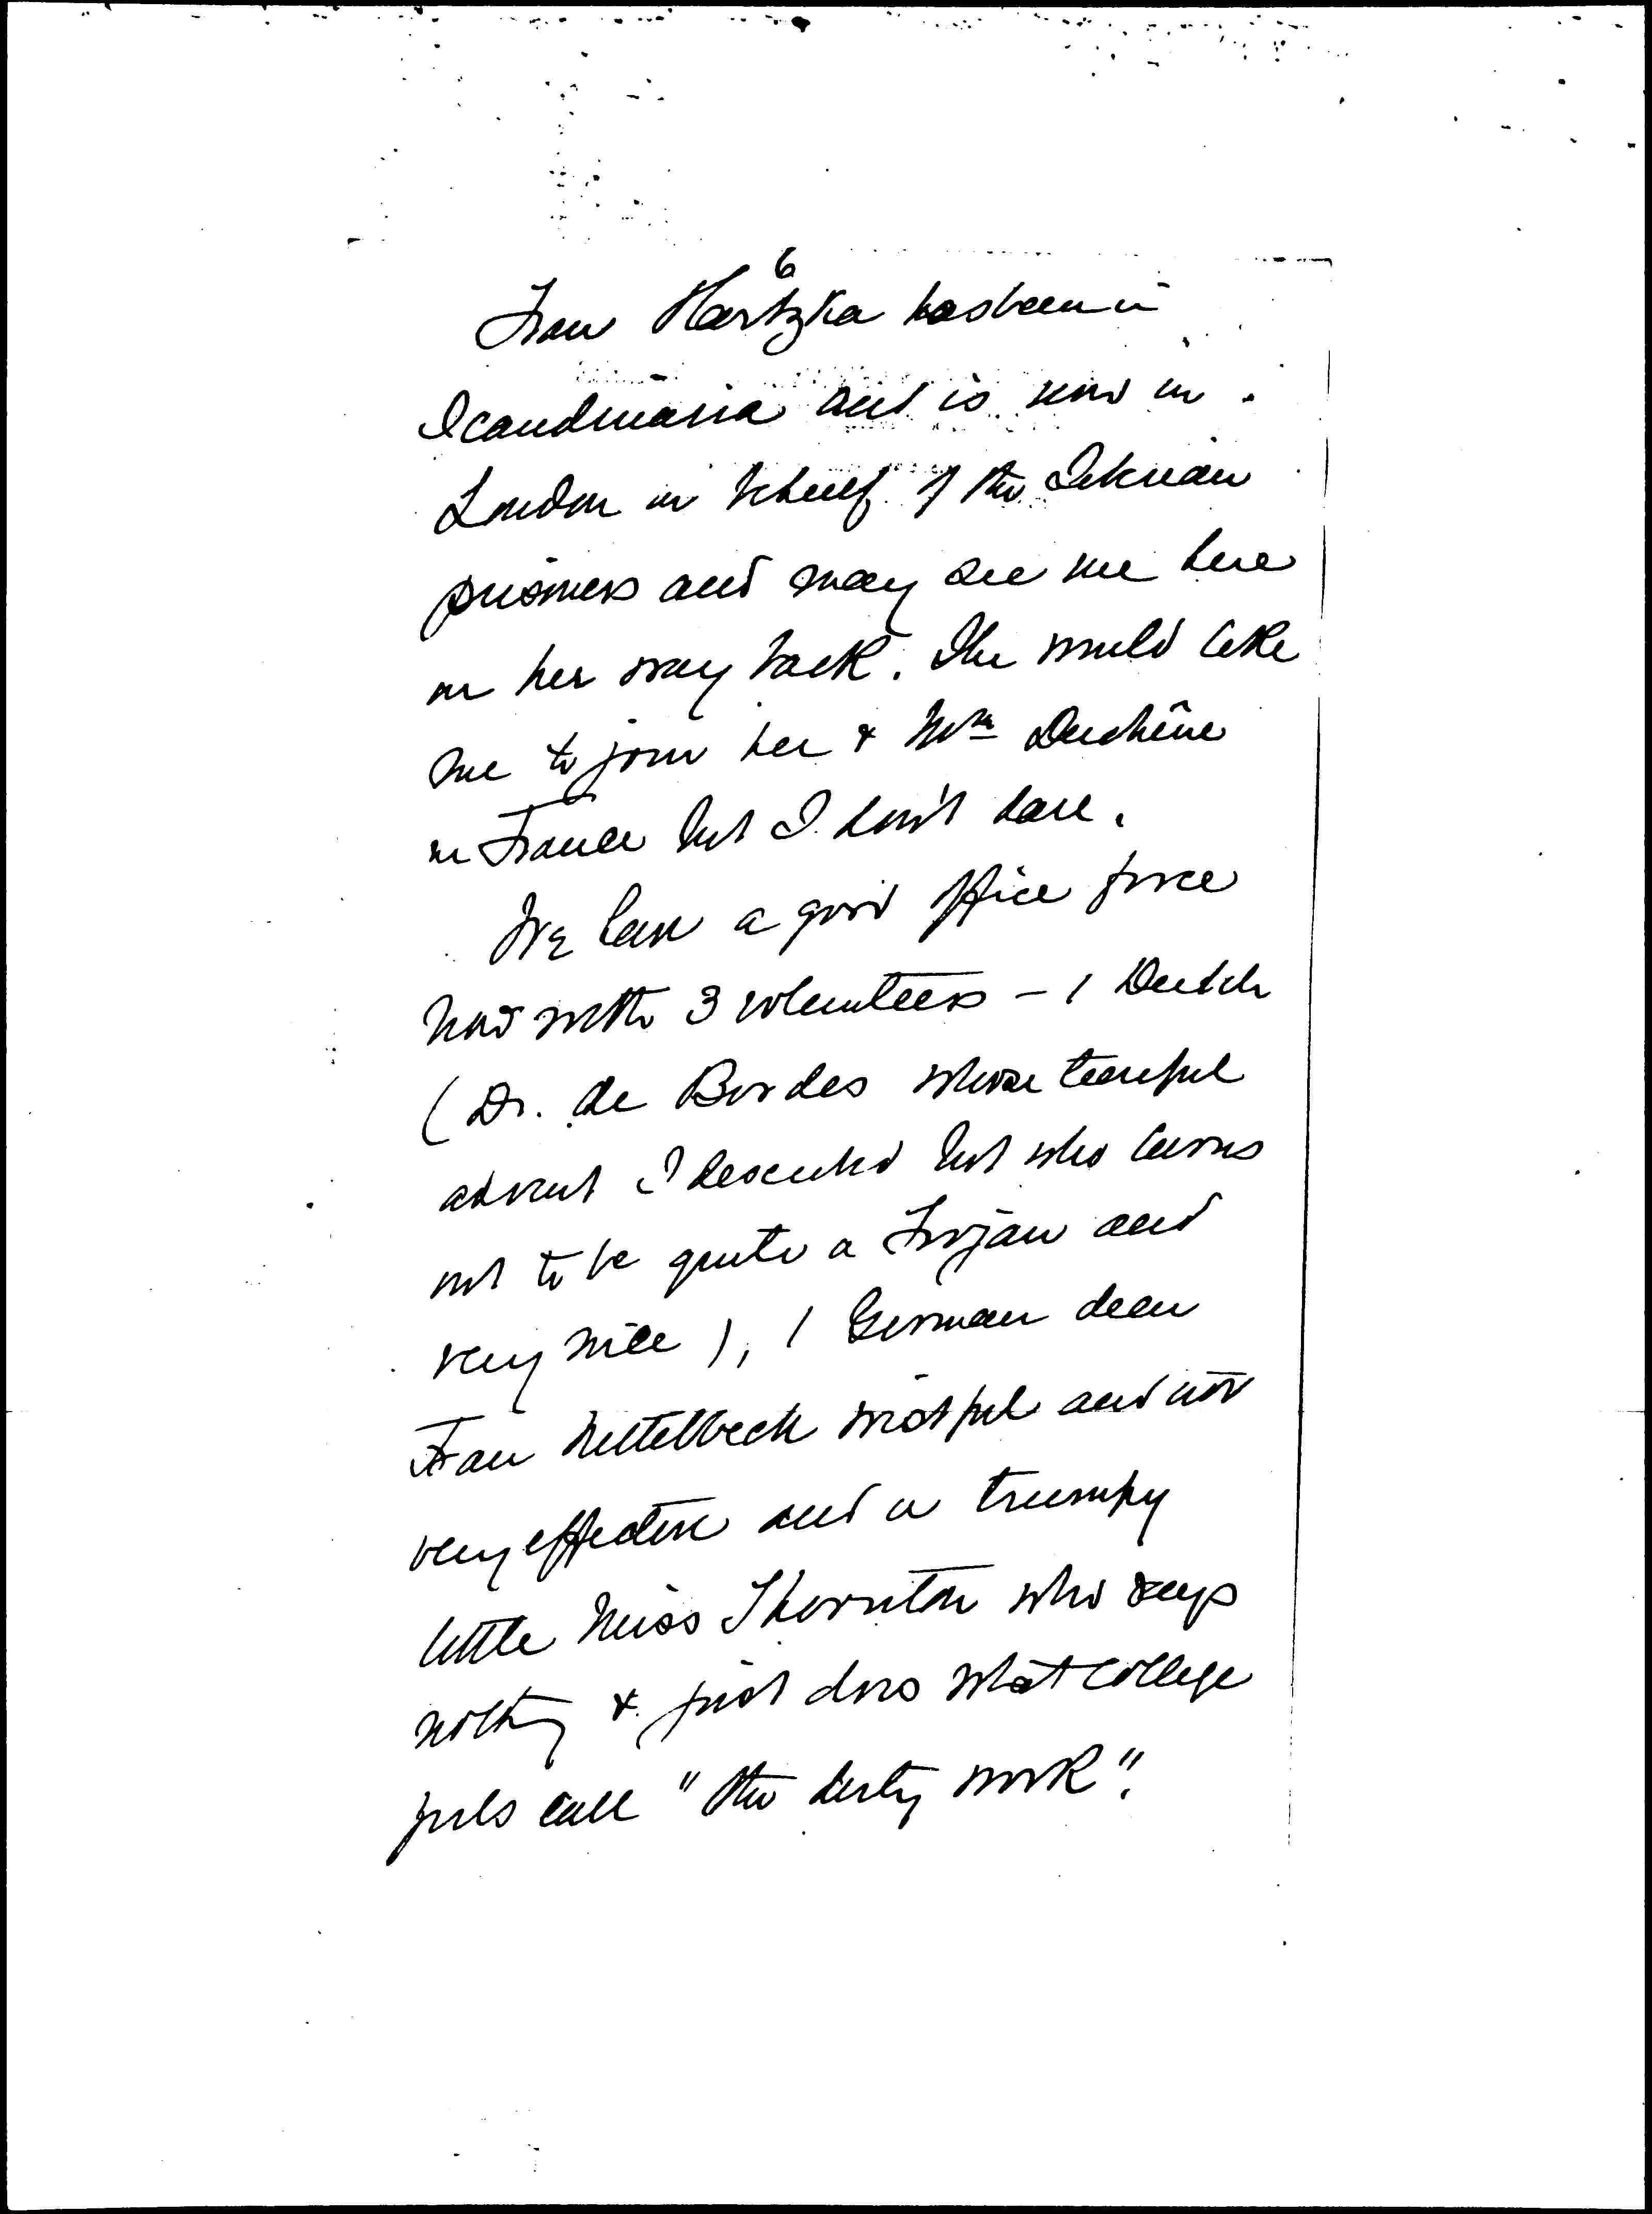 6
Frau Hertzka has been in
Scandinavia and is now in
London in behalf of the Siberian
prisoners and may see me here
on her way back. She would like
me to join her & Mme Duchêne
in France but I don't dare.
We have a good office force
now with 3 volunteers – 1 Dutch
(Dr. de Bordes whose tearful
advent I described but who turns
out to be quite a Trojan and
very nice), 1 German dear
Frau Nettelbeck wistful and not
very effective and a trumpy
little Miss Thornton who says
nothing & just does what college
girls call "the dirty work".